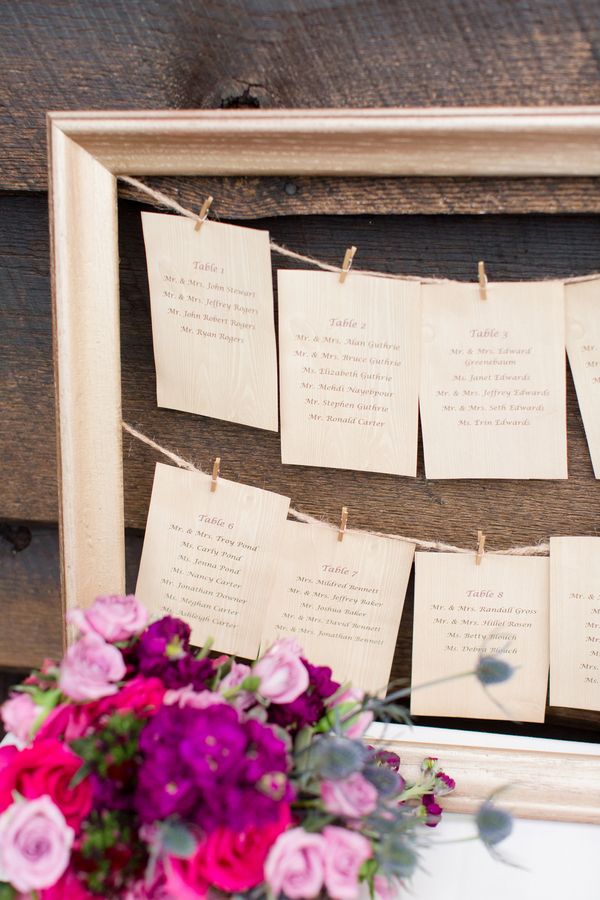 Table 1
Mr. & Mrs. John Stewart
Mr. & Mrs. Jeffrey Rogers
Mr. John Robert Rogers
Mr. Ryan Rogers
Table 2
Mr. & Mrs. Alan Guthrie
Mr. & Mrs. Bruce Guthrie
Ms. Elizabeth Guthrie
Mr. Mehdi Nayebpour
Mr. Stephen Guthrie
Mr. Ronald Carter
Table 3
Mr. & Mrs. Edward
Greenebaum
Ms. Janet Edwards
Mr. & Mrs. Jeffrey Edwards
Mr. & Mrs. Seth Edwards
Ms. Erin Edwards
Table 6
Mr. & Mrs. Troy Pond
Ms. Carly Pond
Ms. Jenna Pond
Ms. Nancy Carter
Mr. Jonathan Downer
Ms. Meghan Carter
Ms. Ashleigh Carter
Table 7
Mrs. Mildred Bennett
Mr. & Mrs. Jeffrey Baker
Mr. Joshua Baker
Mr. & Mrs. David Bennett
Mr. & Mrs. Jonathan Bennett
Table 8
Mr. & Mrs. Randall Gross
Mr. & Mrs. Hillel Rosen
Ms. Betty Blouch
Ms. Debra Blouch